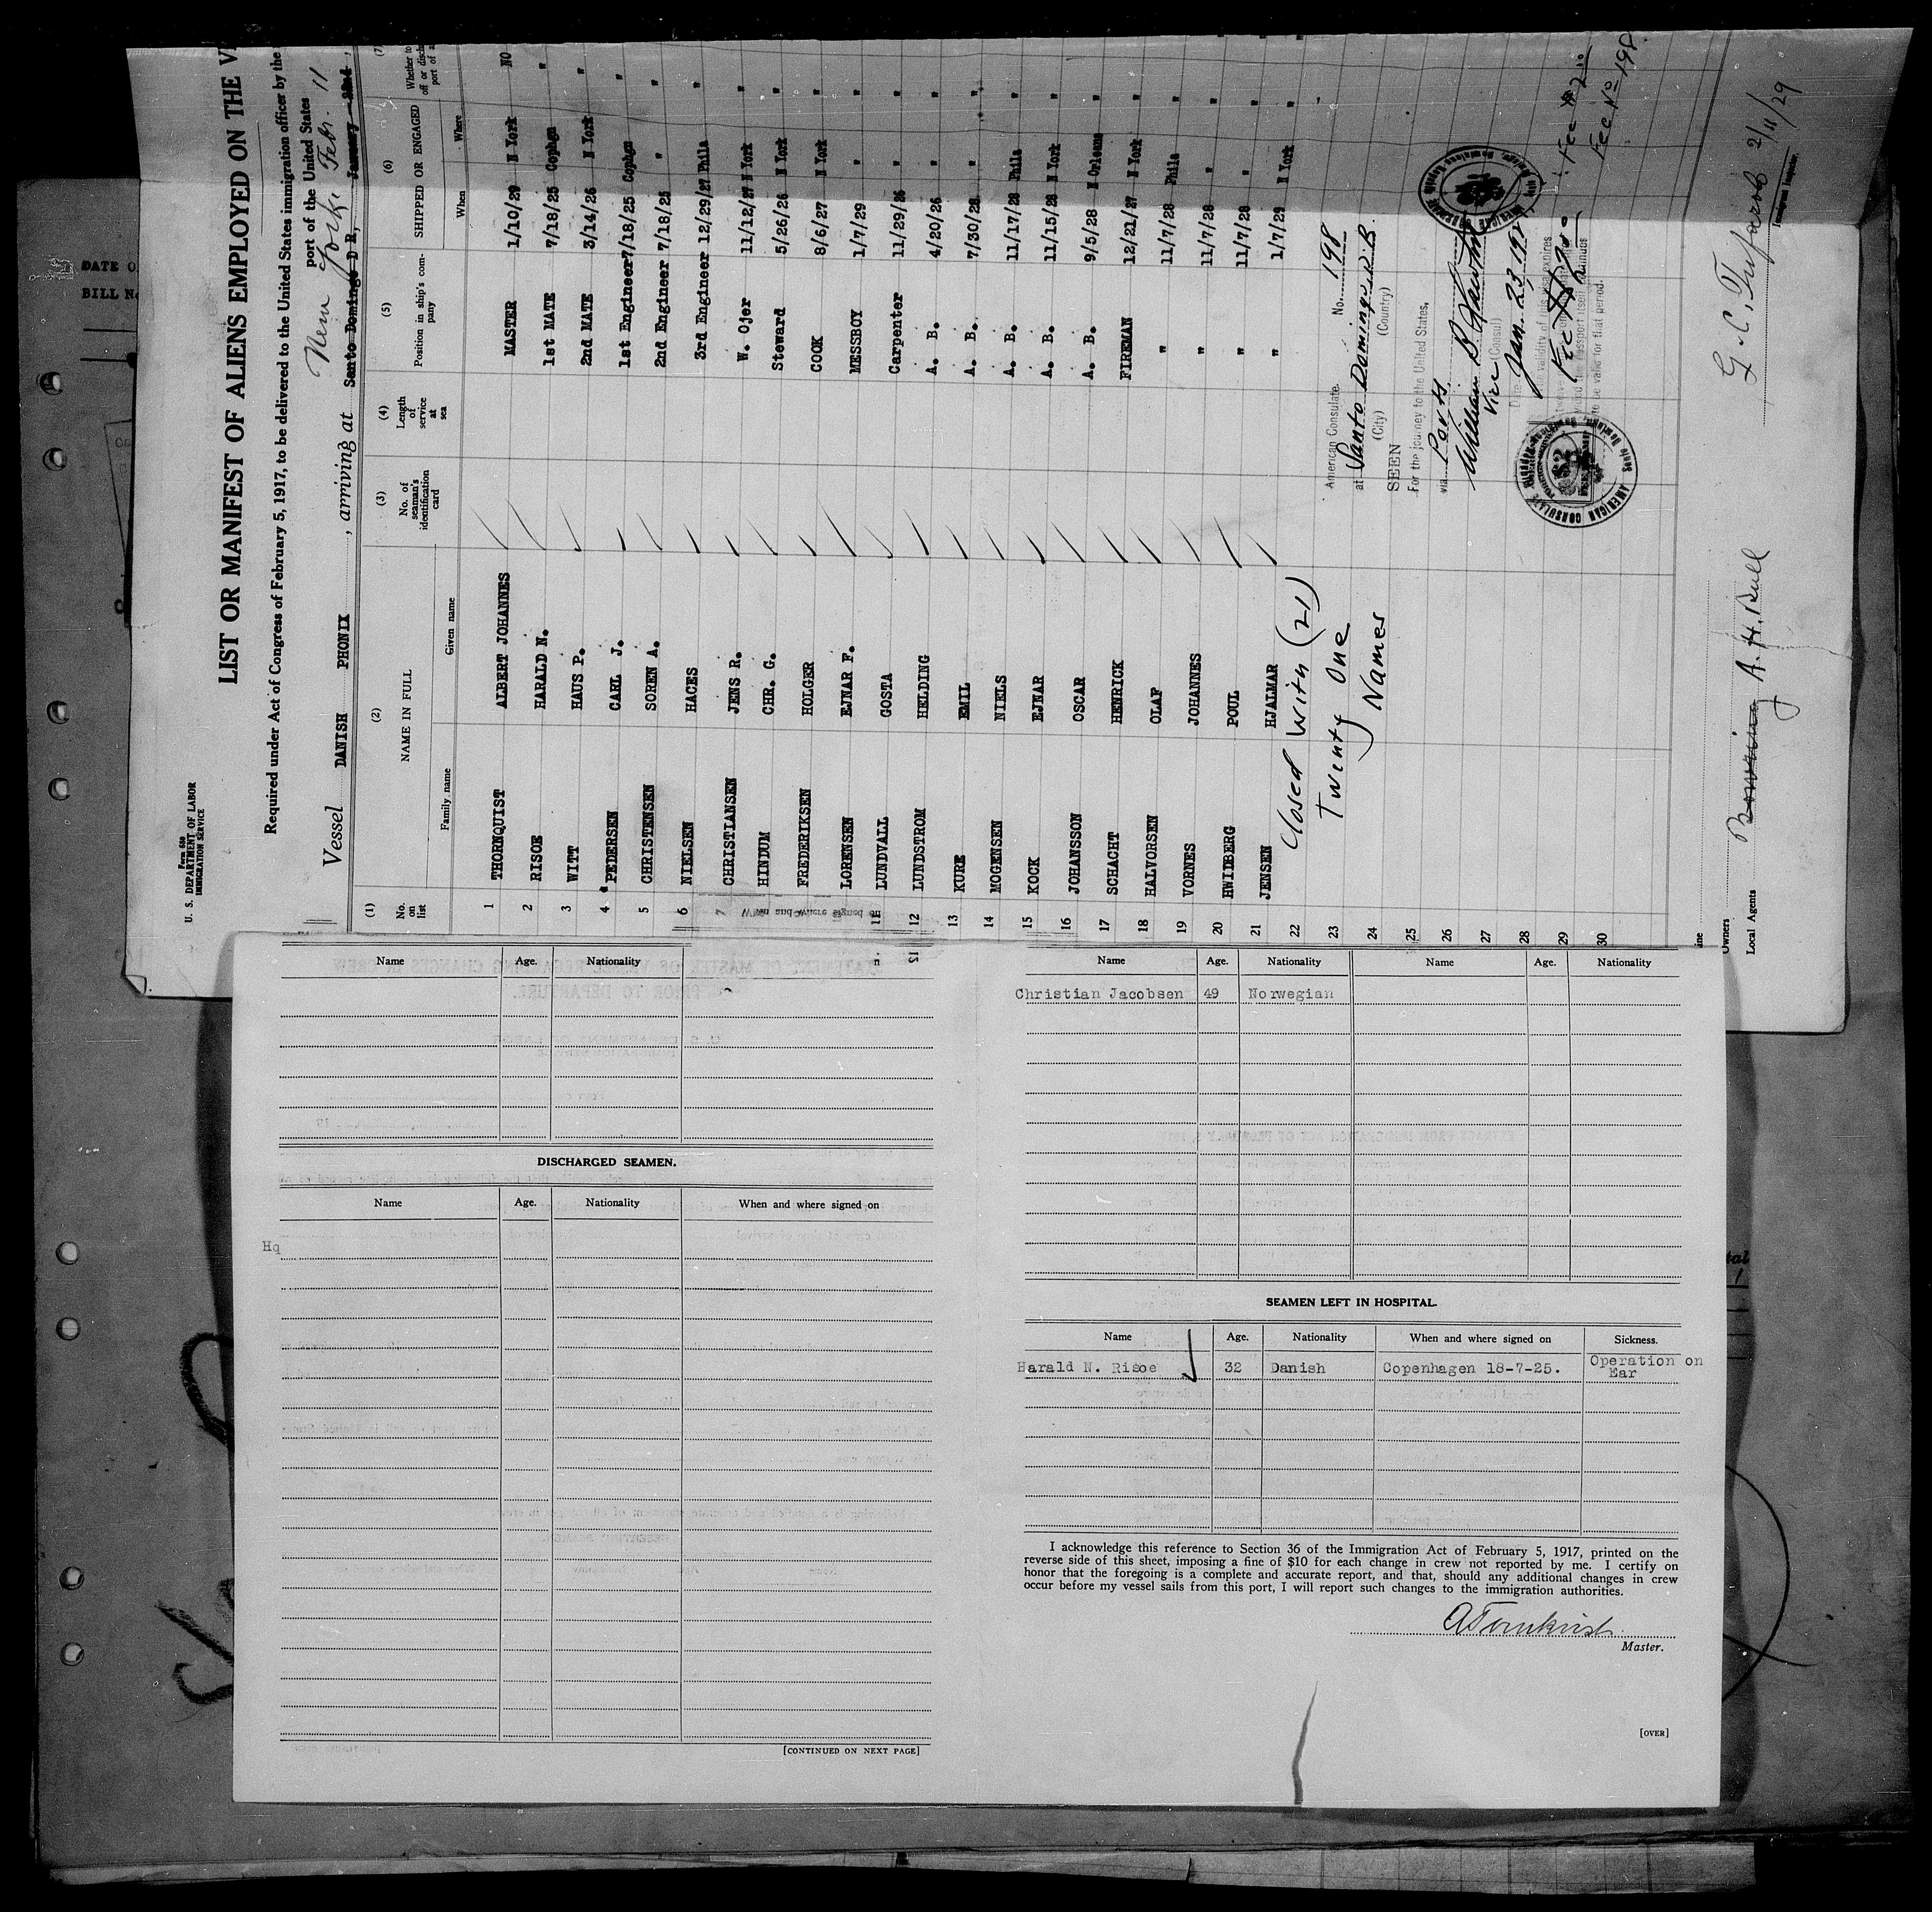 DATE O
BILL No
Form 680
U. S. DEPARTMENT OF LABOR
IMMIGRATION SERVICE
LIST OR MANIFEST OF ALIENS EMPLOYED ON THE
Required under Act of Congress of February 5, 1917, to be delivered to the United States immigration officer by the
port of the United States
New York Feb. 11
Vessel DANISH PHONIX, arriving at Santo Domingo D R, January 22nd,
(1) (2) (3) (4) (5) (6) (7)
No. on list NAME IN FULL No. of seaman's identification card Length of service at sea Position in ship's company SHIPPED OR ENGAGED Whether to
Family name Given name When Where
1 THORNQUIST ALBERT JOHANNES MASTER 1/10/29 N York NO
2 RISOE HARALD N. 1st MATE 7/18/25 Cophgn "
3 WITT HAUS P. 2nd MATE 3/14/26 N York "
4 PEDERSEN CARL J. 1st Engineer 7/18/25 Cophgn "
5 CHRISTENSEN SOREN A. 2nd Engineer 7/18/25 " "
6 NIELSEN HACES 3rd Engineer 12/29/27 Phila "
7 CHRISTIANSEN JENS R. W. Ojer 11/12/27 N York "
HINDUM CHR. G. Steward 5/26/26 N York "
FREDERIKSEN HOLGER COOK 8/6/27 N York "
LORENSEN EJNAR F. MESSBOY 1/7/29 " "
11 LUNDVALL GOSTA Carpenter 11/29/26 " "
12 LUNDSTROM HELDING A. B. 4/20/26 " "
13 KURE EMIL A. B. 7/30/28 " "
14 MOGENSEN NIELS A. B. 11/17/28 Phila "
15 KOCK EJNAR A. B. 11/15/28 N York "
16 JOHANSSON OSCAR A. B. 9/5/28 N Orleans "
17 SCHACHT HENRICK FIREMAN 12/21/27 N York "
18 HALVORSEN OLAF " 11/7/28 Phila "
19 VORNES JOHANNES " 11/7/28 " "
20 HWIDBERG POUL " 11/7/28 " "
21 JENSEN HJALMAR " 1/7/29 N York "
22
23
24
25
26
27
28
29
30
Closed With (21)
Twenty One
Names
American Consulate. No. 198
at Santo Domingo, D. R.
(City) (Country)
SEEN
For the journey to the United States,
via Ports
William B.
Vice (Consul)
Date Jan. 23, 192
AMERICAN CONSULATE
Fee No 198
Owners
Local Agents A. H. Bull
2/11/29
Immigrant Inspector.
Name Age. Nationality
DISCHARGED SEAMEN.
Name Age. Nationality When and where signed on
Hq
[CONTINUED ON NEXT PAGE]
Name Age. Nationality Name Age. Nationality
Christian Jacobsen 49 Norwegian
SEAMEN LEFT IN HOSPITAL.
Name Age. Nationality When and where signed on Sickness.
Harald N. Risoe 32 Danish Copenhagen 18-7-25. Operation on
Ear
I acknowledge this reference to Section 36 of the Immigration Act of February 5, 1917, printed on the
reverse side of this sheet, imposing a fine of $10 for each change in crew not reported by me. I certify on
honor that the foregoing is a complete and accurate report, and that, should any additional changes in crew
occur before my vessel sails from this port, I will report such changes to the immigration authorities.
ATornkvist
Master.
[OVER]